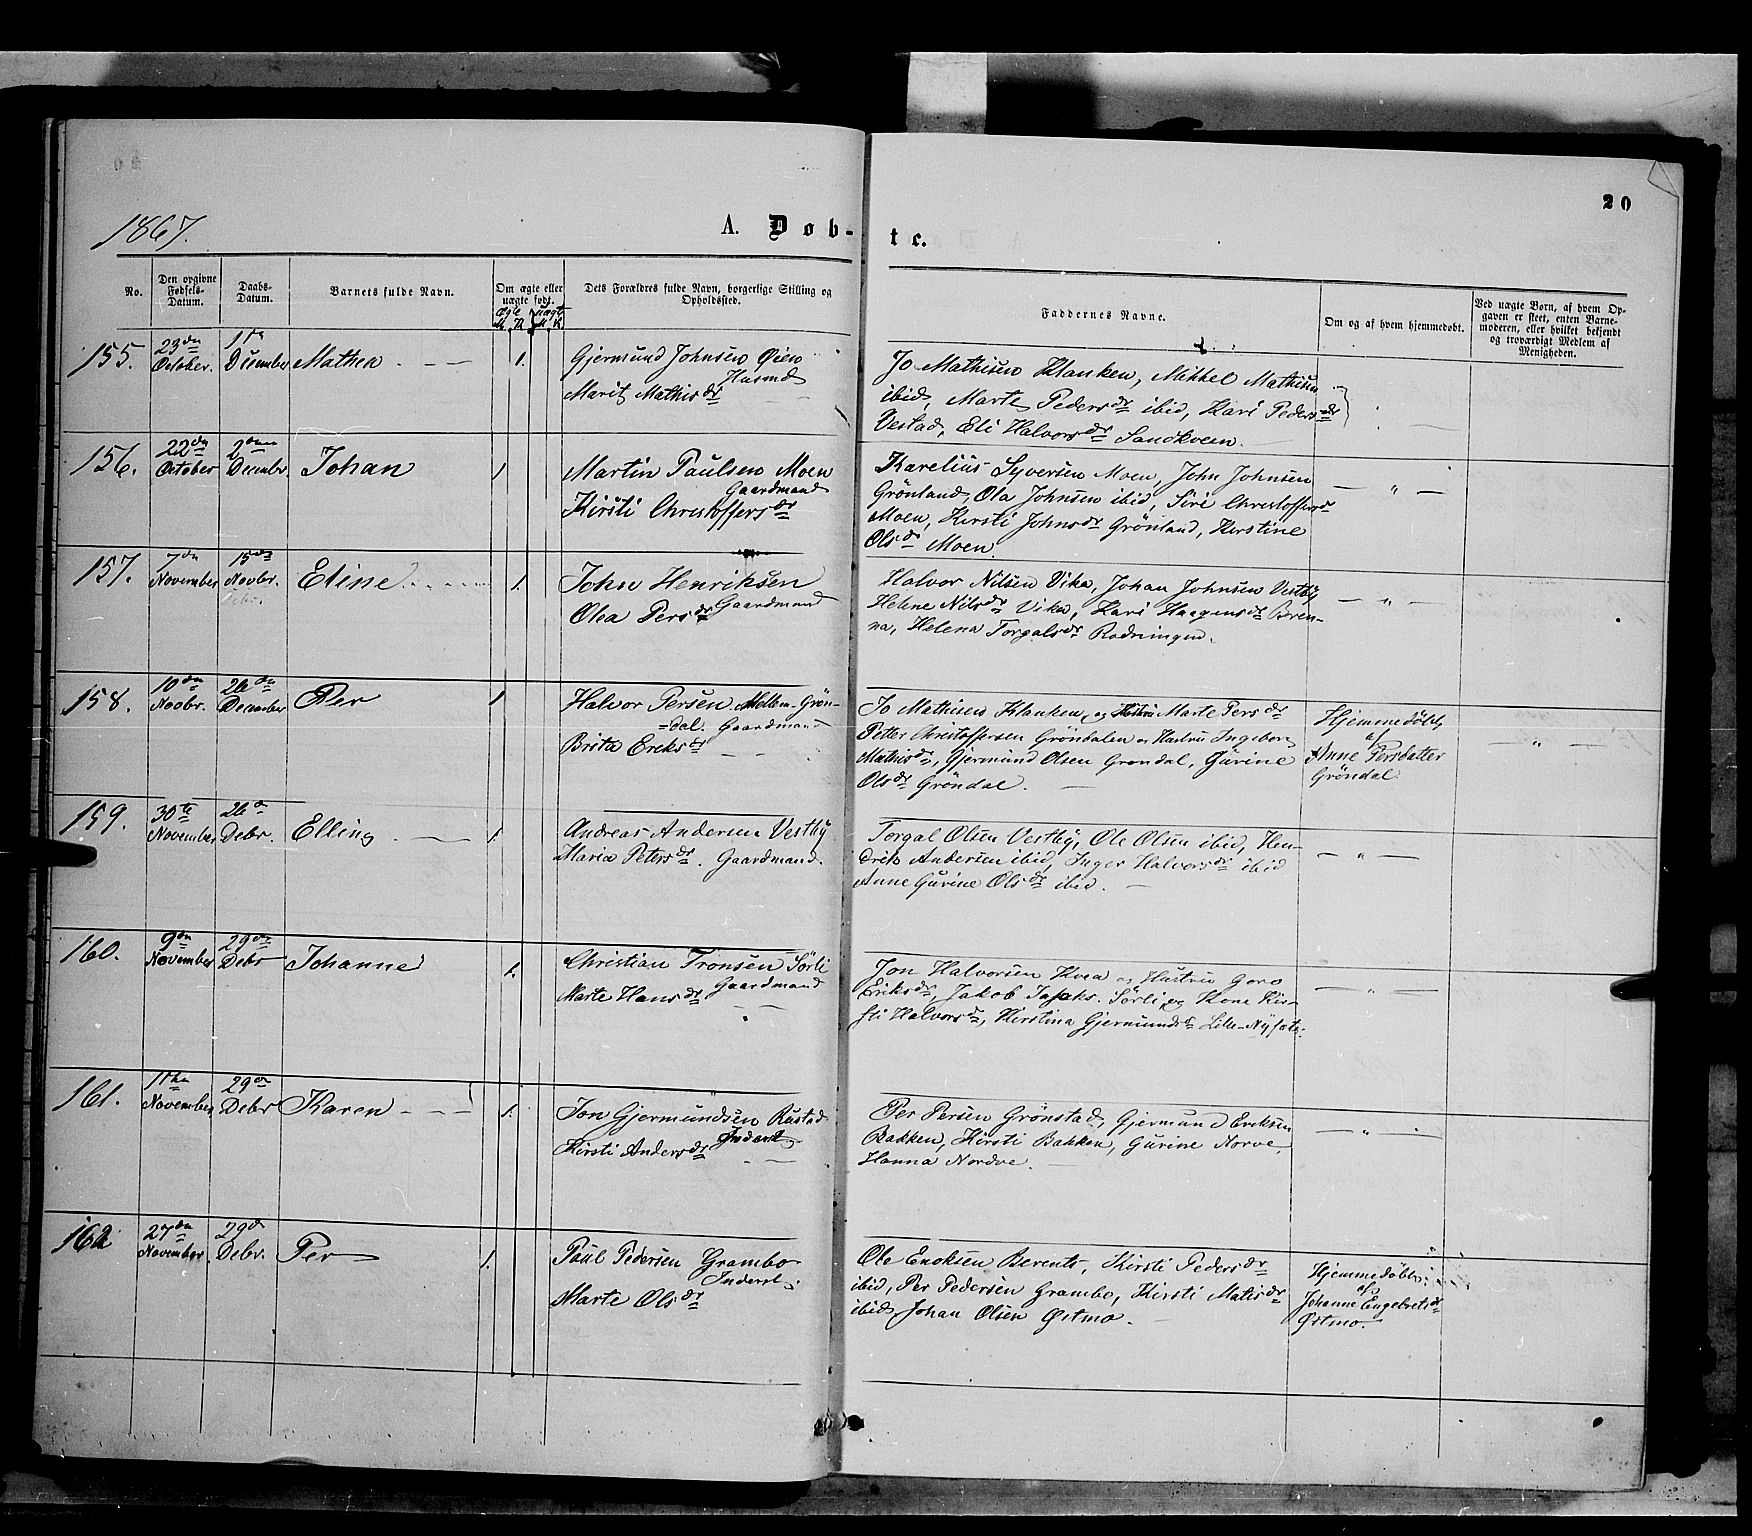 20
1867.
A. Døb-
te.
No.
Den opgivne Fødsels-Datum.
Daabs-Datum.
Barnets fulde Navn.
Om ægte eller uægte født.
ægte uægte
M. K. M. K.
Dets Forældres fulde Navn, borgerlige Stilling og Opholdssted.
Faddernes Navne.
Om og af hvem hjemmedøbt.
Ved uægte Børn, af hvem Opgaven er skeet, enten Barnemoderen, eller hvilket bekjendt og troværdigt Medlem af Menigheden.
155. 23dn October. 1ste December Mathea 1.
Gjermund Johnsen Øien
Husmd
Marit Mathisdr
Jo Mathisen Klanken, Mikkel Mathisen
ibid, Marte Pedersdr ibid, Kari Pedersdr
Vestad, Eli Halvorsdr Sandkveen.
156. 22dn October 2den Decembr Johan 1
Martin Paulsen Moen
Gaardmand
Kirsti Christoffersdr
Karelius Syversen Moen, John Johnsen
Grönland, Ola Johnsen ibid, Siri Christoffersdr
Moen, Kirsti Johnsdr Grönland, Kirstine
Olsdr Moen.
— " —
157. 7dn November 15de Novbr. Debr. Eline 1.
John Henriksen
Gaardmand
Olea Persdr
Halvor Nilsen Vika, Johan Johnsen Vestby
Helene Nilsdr Vika, Kari Haagensdr Bren-
na, Helena Torgalsdr Rodningen.
— " —
158. 10dn Novbr. 26dn December Per 1
Halvor Persen Mellem-Grön-
=dal. Gaardmand
Brita Eriksdr
Jo Mathisen Klanken, og Hustru Marte Persdr
Petter Christoffersen Gröndalen og Hustru Ingeborg
Mathisdr, Gjermund Olsen Grøndal, Gurine
Olsdr Gröndal.
Hjemmedöbt
af
Anne Persdatter
Gröndal
— " —
159. 30te November 26d Debr. Elling 1.
Andreas Andersen Vestby
Maria Petersdr. Gaardmand.
Torgal Olsen Vestby, Ole Olsen ibid, Hen-
drik Andersen ibid, Inger Halvorsdr ibid
Anne Gurine Olsdr ibid.
— " —
160. 9dn November 29de Debr Johanne 1.
Christian Tronsen Sörli
Gaardmand
Marte Hansdr
Jon Halvorsen Kvea og Hustru Goro
Eriksdr, Jakob Jakobs. Sörli og Kone Kir-
sti Halvorsdr, Kirstina Gjermundsdr Lille-Nysæt.
— " —
161. 11te November 29de Debr Karen 1.
Jon Gjermundsen Rustad
Inderst
Kirsti Andersdr
Per Persen Grönstad, Gjermund Eriksen
Bakken, Kirsti Bakken, Gurine Norve,
Hanna Nordve.
— " —
162 27dn November. 29d Debr. Per 1.
Paul Pedersen Grambo
Inderst.
Marte Olsdr
Ole Enoksen Berents, Kirsti Pedersdr
ibid, Per Pedersen Grambo, Kirsti Matisdr
ibid, Johan Olsen Østmo.
Hjemmedöbt
af
Johanne Engebretsdr
Østmo.